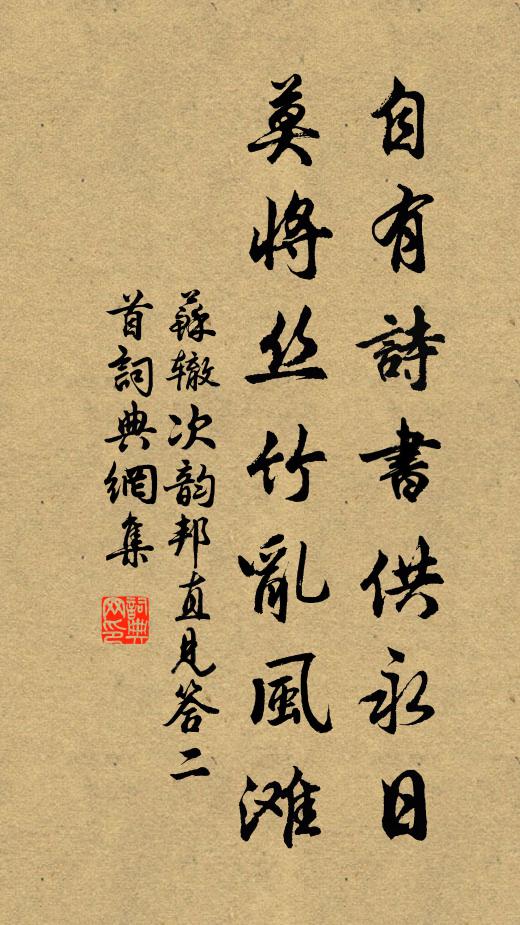 自有詩書供永日
莫將丝竹亂風滩
蘇辙次韵邦直見答二
首詞典網集
詞典网印